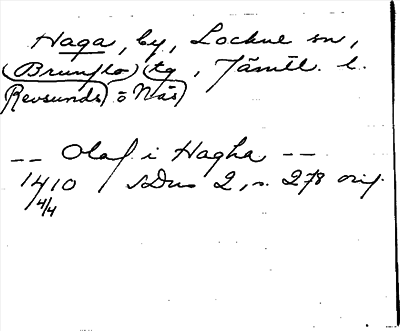 Haga, by, Lockne sn,
(Brunflo) tg, Jämtl. l.
(Revsunds) o Näs)
-- Olaf i Hagha --
1410 4/4 SDns 2, s. 278 orig.